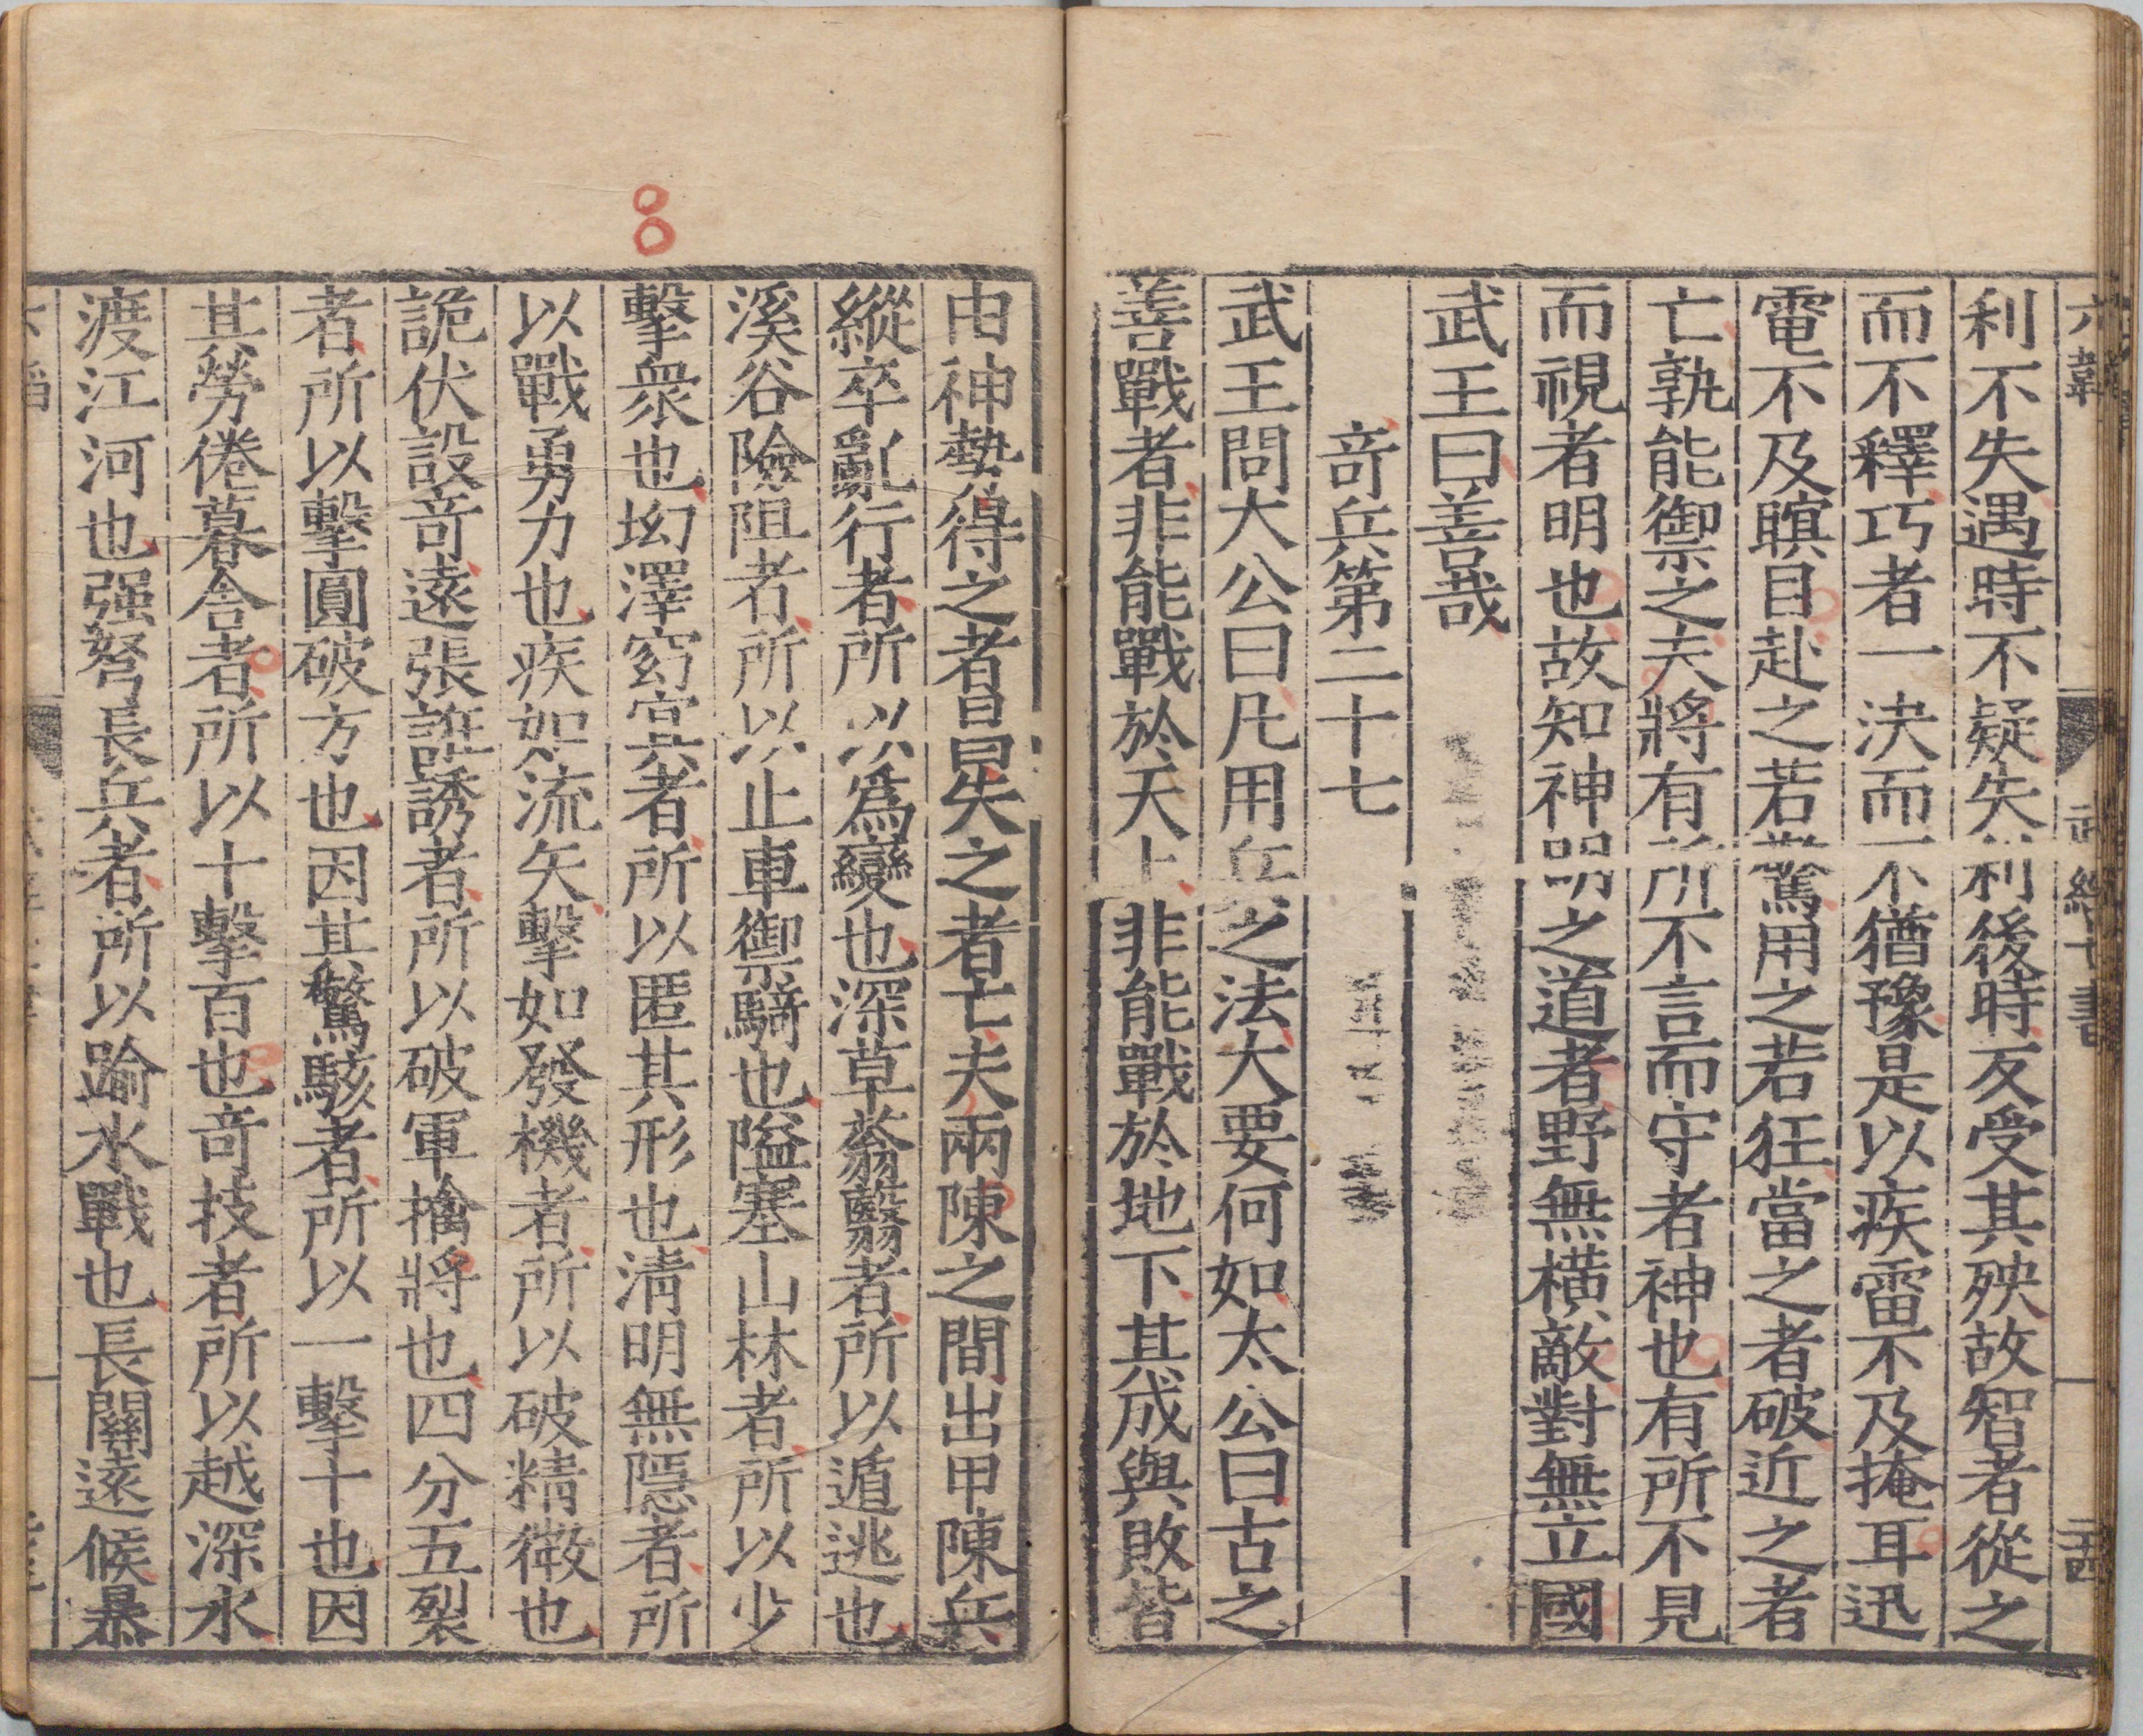 六韜
武經七書
二十四
利不失遇時不疑失利後時反受其殃故智者從之
而不釋巧者一決而不猶豫是以疾雷不及掩耳迅
電不及瞑目赴之若驚用之若狂當之者破近之者
亡孰能御之夫將有所不言而守者神也有所不見
而視者明也故知神明之道者野無橫敵對無立國
武王曰善哉
竒兵第二十七
武王問太公曰凡用兵之法大要何如太公曰古之
善戰者非能戰於天上非能戰於地下其成與敗皆
由神勢得之者昌失之者亡夫兩陳之間出甲陳兵
縱卒亂行者所以爲變也深草蓊翳者所以遁逃也
溪谷險阻者所以止車御騎也隘塞山林者所以少
擊衆也坳澤窈冥者所以匿其形也清明無隱者所
以戰勇力也疾如流矢擊如發機者所以破精微也
詭伏設竒遠張誑誘者所以破軍擒將也四分五裂
者所以擊圓破方也因其驚駭者所以一擊十也因
其勞倦暮舍者所以十擊百也竒技者所以越深水
渡江河也强弩長兵者所以踰水戰也長關遠候暴